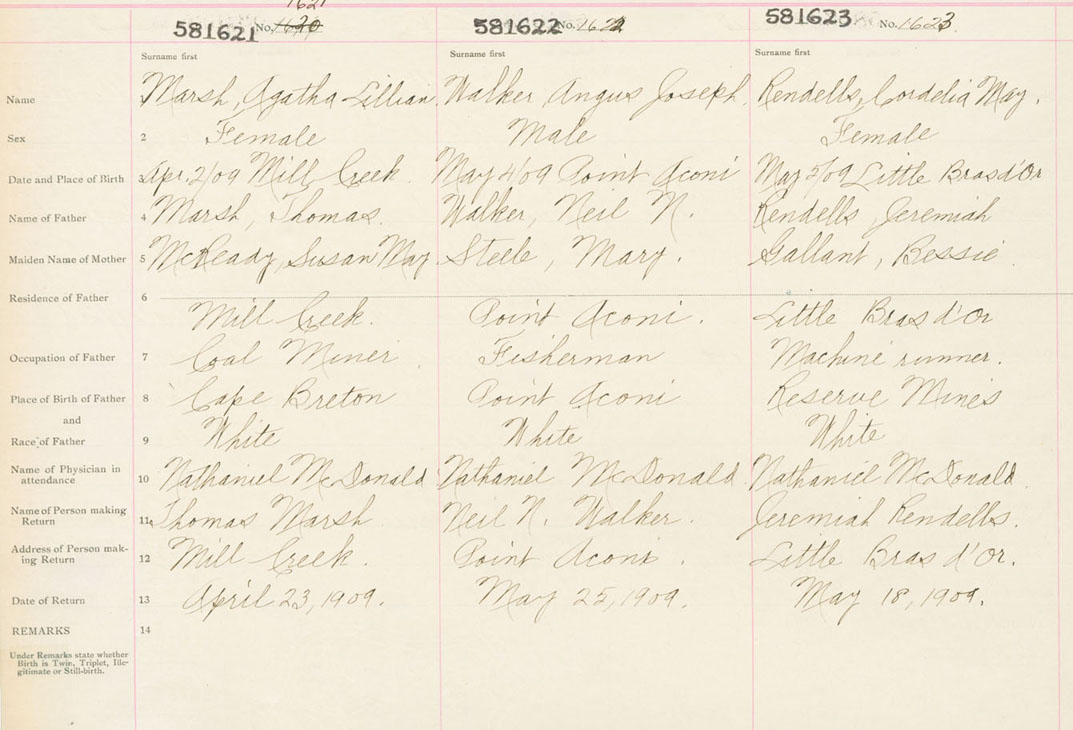 1621
581621 No. 1620 581622 No. 1622 581623 No. 1623
Surname first Surname first Surname first
Name Marsh, Agatha Lillian Walker Angus Joseph Rendells, Cordelia May.
Sex 2 Female Male Female
Date and Place of Birth 3 Apr. 2/09 Mill Creek. May 4/09 Point Aconi May 3/09 Little Bras d'Or
Name of Father 4 Marsh, Thomas. Walker, Neil N. Rendells, Jeremiah
Maiden Name of Mother 5 McReady, Susan May. Steele, Mary. Gallant, Bessie
Residence of Father 6
Mill Creek. Point Aconi. Little Bras d'Or
Occupation of Father 7 Coal Miner Fisherman Machine runner.
Place of Birth of Father 8 Cape Breton Point Aconi Reserve Mines
and
Race of Father 9 White White White
Name of Physician in
attendance 10 Nathaniel McDonald Nathaniel McDonald Nathaniel McDonald
Name of Person making
Return 11 Thomas Marsh Neil N. Walker. Jeremiah Rendells.
Address of Person mak-
ing Return 12 Mill Creek. Point Aconi. Little Bras d'Or.
Date of Return 13 April 23, 1909. May 25, 1909. May 18, 1909.
REMARKS 14
Under Remarks state whether
Birth is Twin, Triplet, Ille-
gitimate or Still-birth.